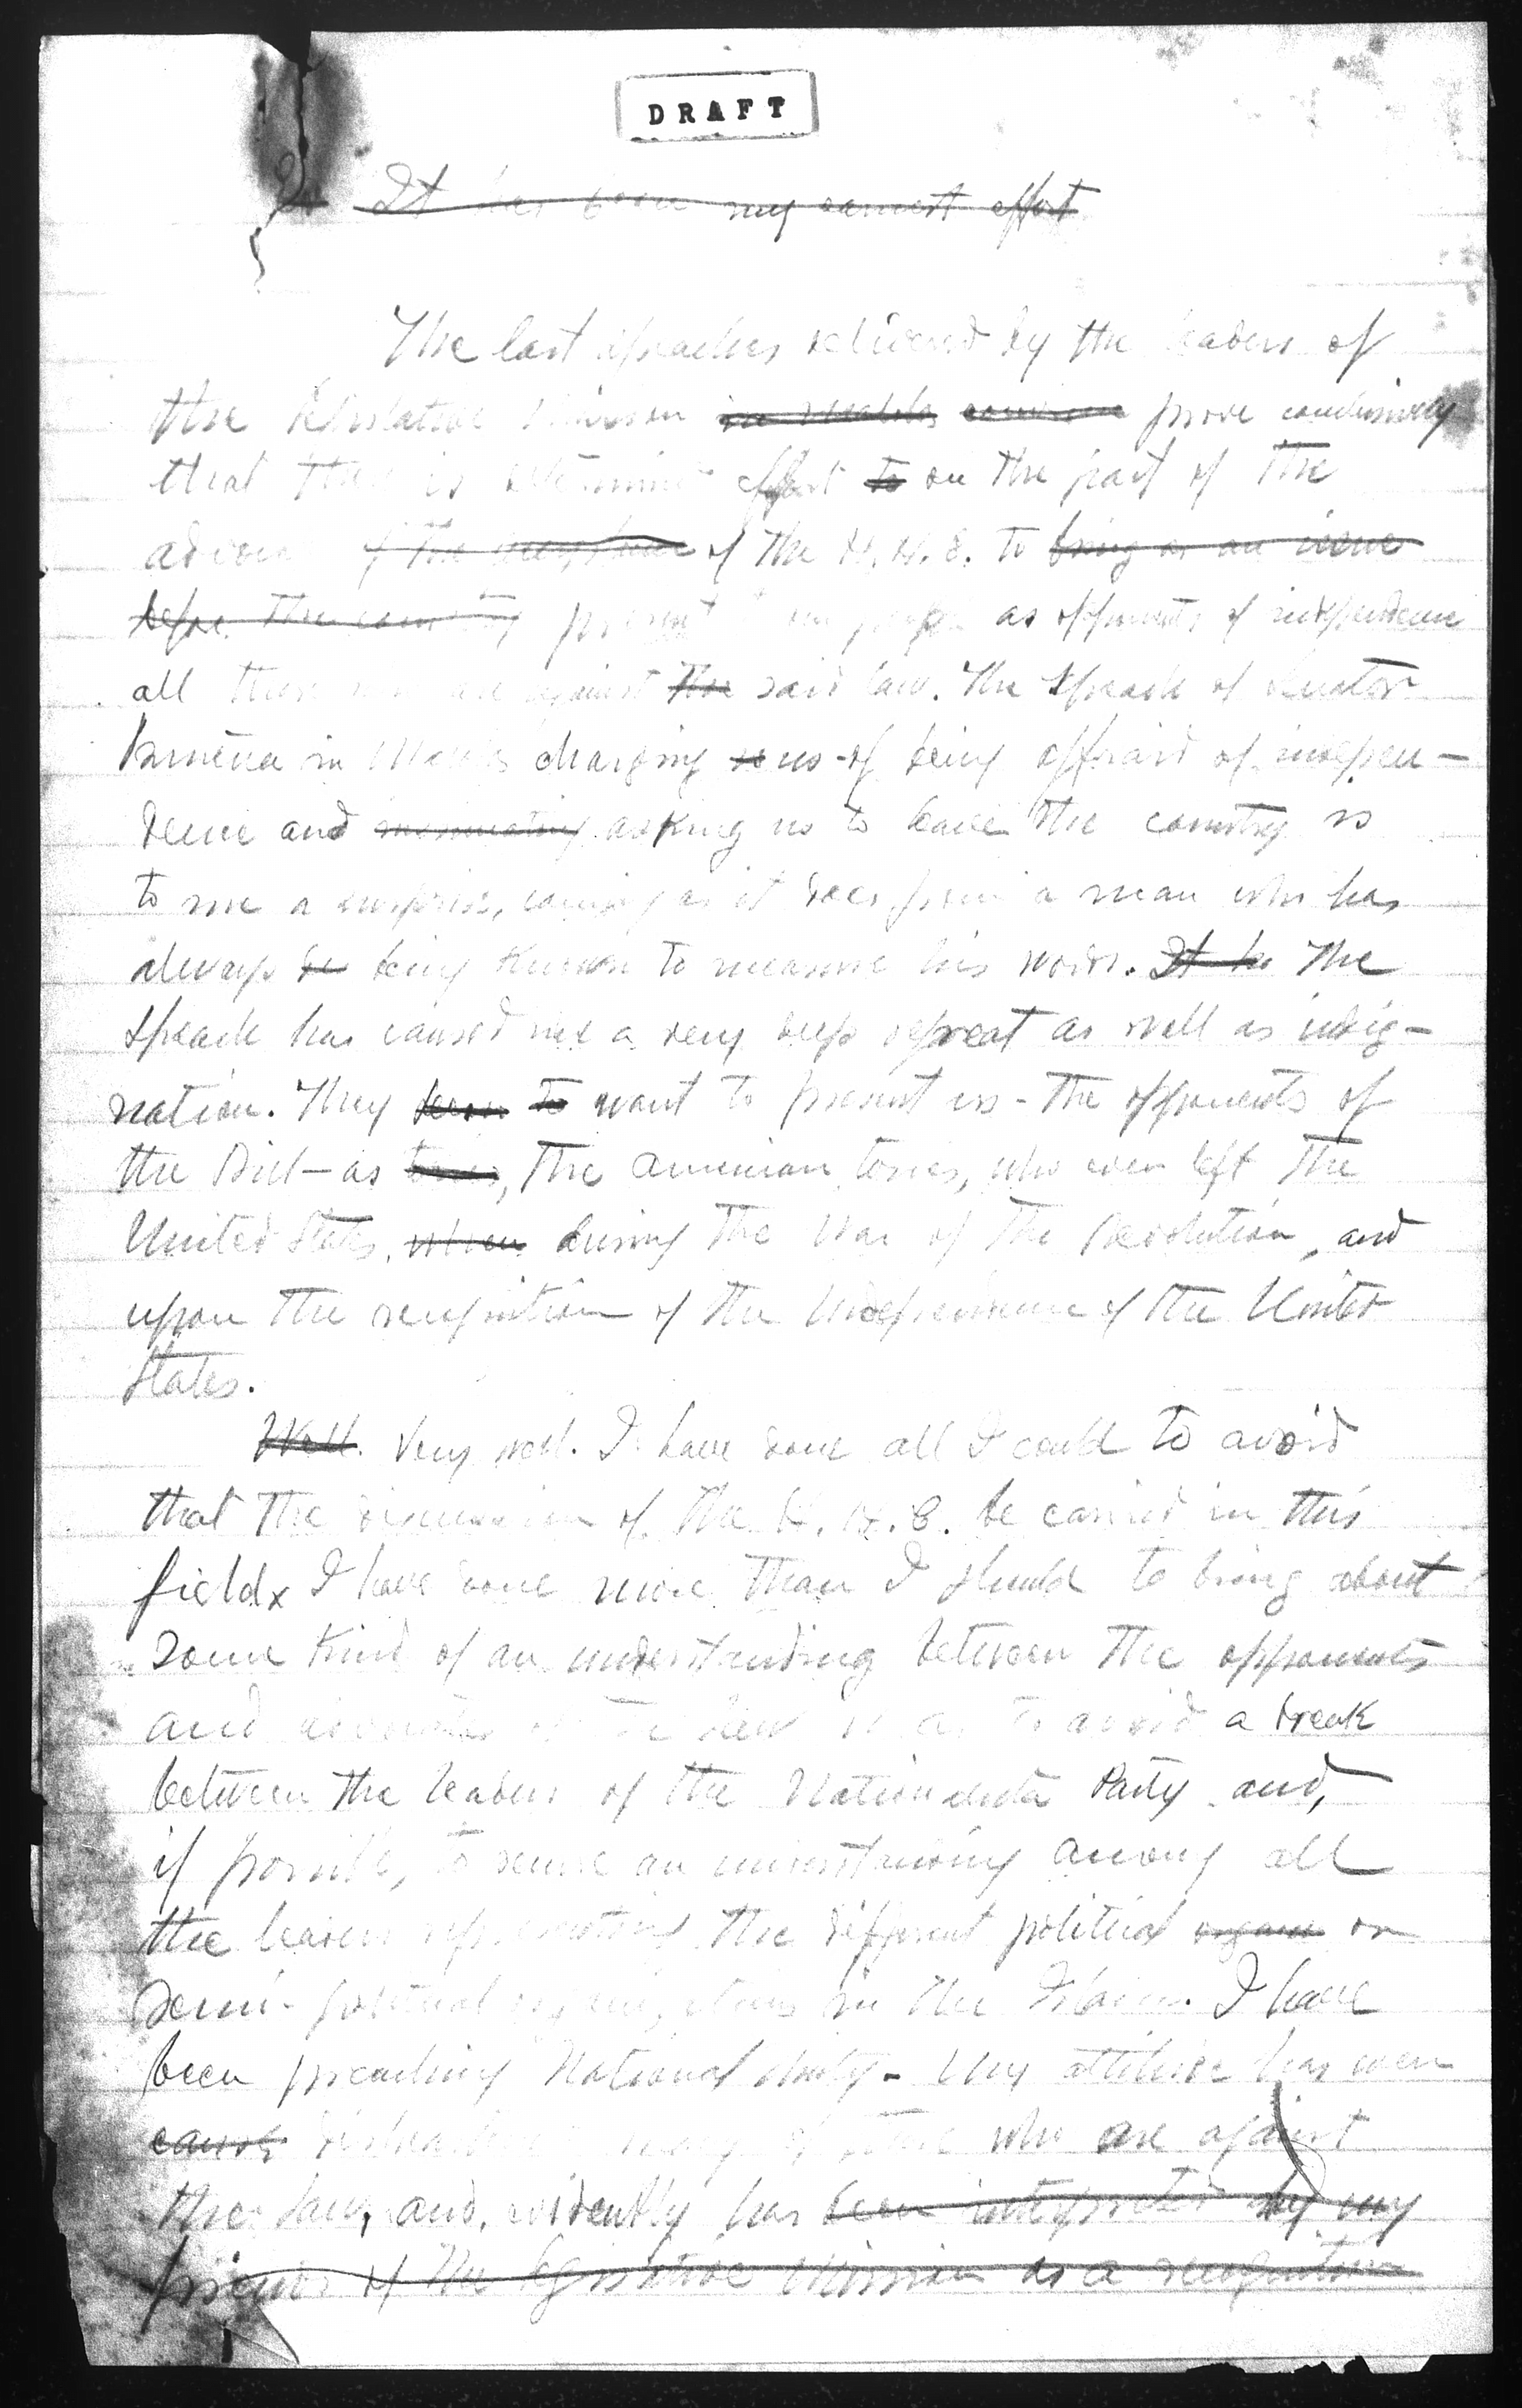 DRAFT
It has been my earnest effort
The last speaches delivered by the leaders of
the Legislative Mission in prove conclusively
that there is determined effort to on the part of the
of the H. H. C. to bring as an issue
before the country present our people as opponents of independence
all those who are against the said law. The Speach of Senator
in Manila charging us of being affraid of indepen-
dence and insinuating asking us to leave the country is
to me a surprise, coming as it does from a man who has
always be being known to measure his words. It ha The
Speach has caused me a very deep regreat as well as indig-
nation. They seem to want to present us - the opponents of
the Bill - as tories, the American tories, who even left the
United States, when during the War of the Revolution, and
upon the recognition of the Independence of the United
States.
Well. Very well. I have done all I could to avoid
that the discussion of the H. H. C. be carried in this
field x I have done more than I should to bring about
some kind of an understanding between the opponents
and advocates of the law so as to avoid a break
between the leaders of the Nacionalista Party and,
if possible, to secure an understanding among all
the leaders representing the different political organi or
semi-political organizations in the Islands. I have
been preaching National Unity - My attitude has even
many of those who are against
the law, and, evidently has been interpreted by my
friends of the Legislative Mission as a recognition